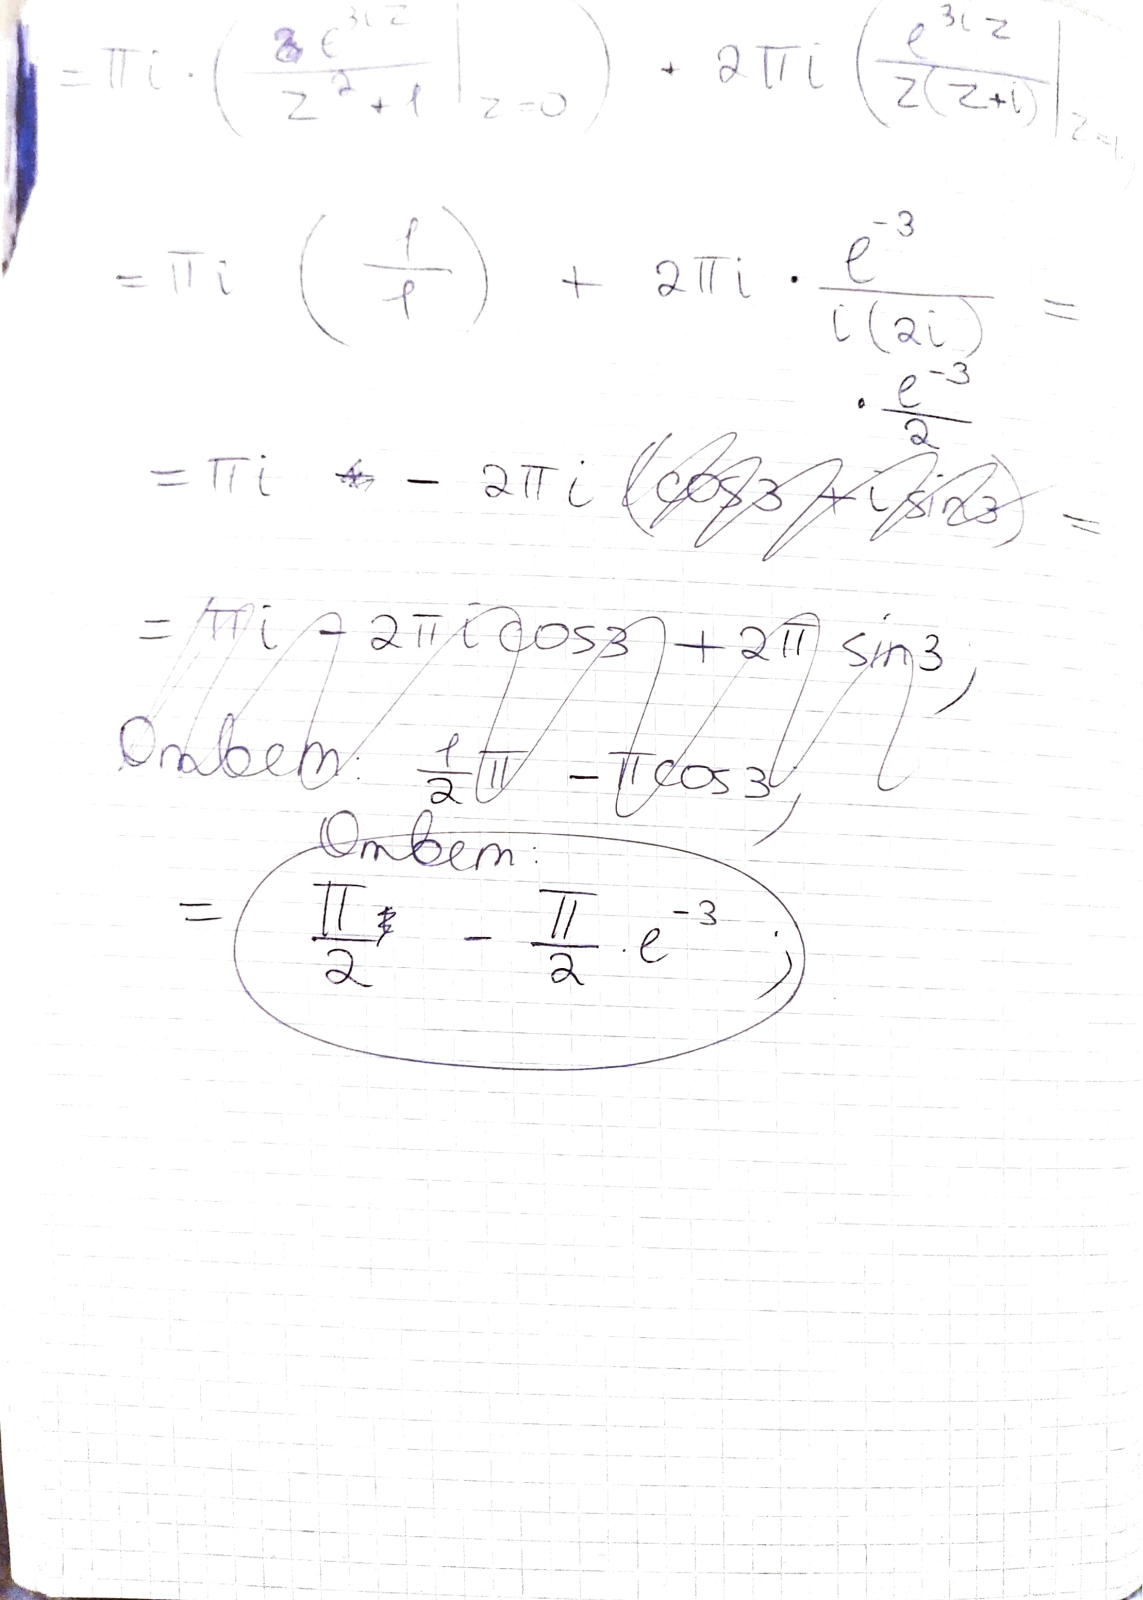 = πi · ( e^{3iz} / (z² + 1) |_{z=0} ) + 2πi ( e^{3iz} / (z(z+i)) |_{z=i} )
= πi ( 1/1 ) + 2πi · e^{-3} / (i(2i)) =
· e^{-3} / 2
= πi - 2πi (cos3 + i sin3) =
= πi - 2πi cos3 + 2π sin3,
Ответ: 1/2 π - π cos3,
Ответ:
= π/2 - π/2 · e^{-3};